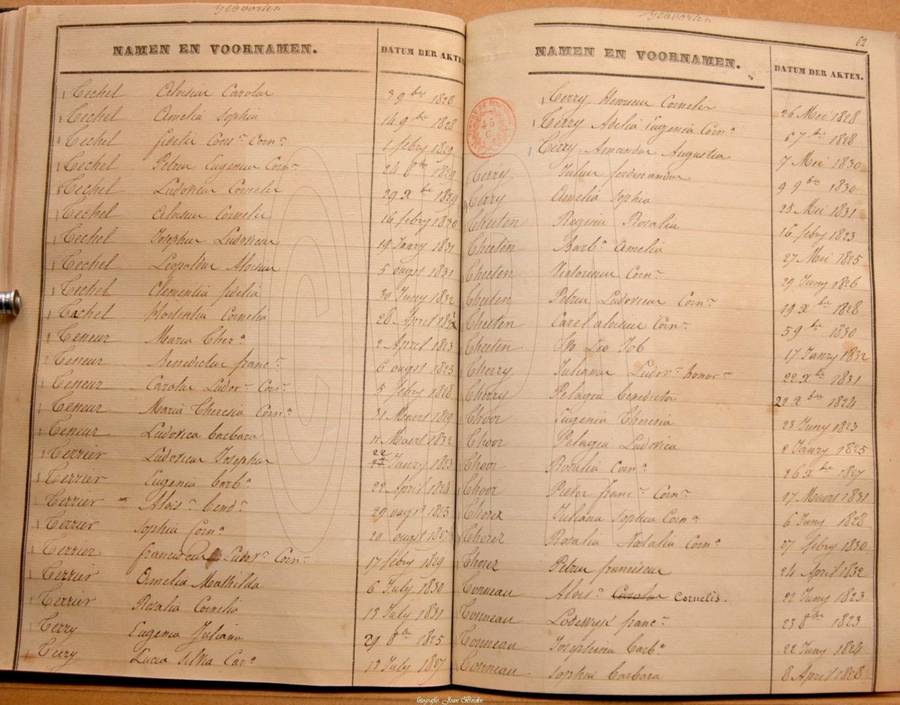 Geboorten
NAMEN EN VOORNAMEN. DATUM DER AKTEN
Techel Aloisius Carolus 3 9bre 1828
Techel Amelia Sophia 14 9br 1828
Techel Corns Corns 1 febry 1829
Techel Petrus Eugenius Corns 24 8br 1829
Techel Ludovicus Cornelis 29 Xbre 1829
Techel Aloisius Cornelis 16 febry 1830
Techel Josephus Ludovicus 19 Janry 1831
Techel Leopoldus Aloisius 5 augst 1831
Techel Clementia fidelia 30 Juny 1832
Techel Hortentia Cornelia 26 April
Teneur Maria Ther. 2 April 1823
Teneur Benedictus franc. 6 augst 1825
Teneur Carolus Ludov. Corns 5 febry 1828
Teneur Maria Theresia Corna 31 Maart 1829
Teneur Ludovica barbara 11 Maart 1832
Terrier Ludovicus Josephus 22 Janry 1823
Terrier Eugenia barba 22 April 1824
Terrier Alois. bend. 29 augst 1825
Terrier Sophia Corna 20 augst 1827
Terrier franciscus Ludov. Corns 17 febry 1829
Terrier Amelia Mathilda 6 July 1830
Terrier Rosalia Cornelia 13 July 1831
Terry Eugenia Juliana 29 8br 1825
Terry Lucia Silvia Car. 13 July 1827
Geboorten
62
NAMEN EN VOORNAMEN. DATUM DER AKTEN.
Terry Henricus Cornelis 26 Mei 1828
Terry Adelia Eugenia Corna 7br 1828
Terry Amandus Augustus 7 Mei 1830
Terry Julius ferdinandus 9 9bre 1830
Amelia Sophia 25 Mei 1831
Theeten Regina Rosalia 16 febry 1823
Theeten Barba Amelia 27 Mei 1825
Theeten Corns 29 Juny 1826
Theeten Petrus Ludovicus Corns 19 Xbre 1828
Theeten Carel aloisius Corns 5 9bre 1830
Theeten Leo Job 17 Janry 1832
Therry Juliana Ludov. honor. 22 Xbre 1831
Therry Pelagia Benedicta 22 Xbre 1824
Thoor Eugenia Theresia 23 Juny 1823
Thoor Pelagia Ludovica 2 Janry 1825
Thoor Rosalia Corna 26 Xbre 1827
Thoor Pieter franc. Corns 17 Maart 1831
Juliana Sophia Corna 6 Juny 1828
Rosalia Natalia Corna 27 febry 1830
Petrus franciscus 24 April 1832
Tonneau Alois. Carolus Cornelis. 22 Juny 1823
Tonneau Lodewyk franc. 23 8bre 1823
Tonneau Josephina barba 22 Juny 1824
Tonneau Sophia barbara 8 April 1828
fotografie Joan Bader